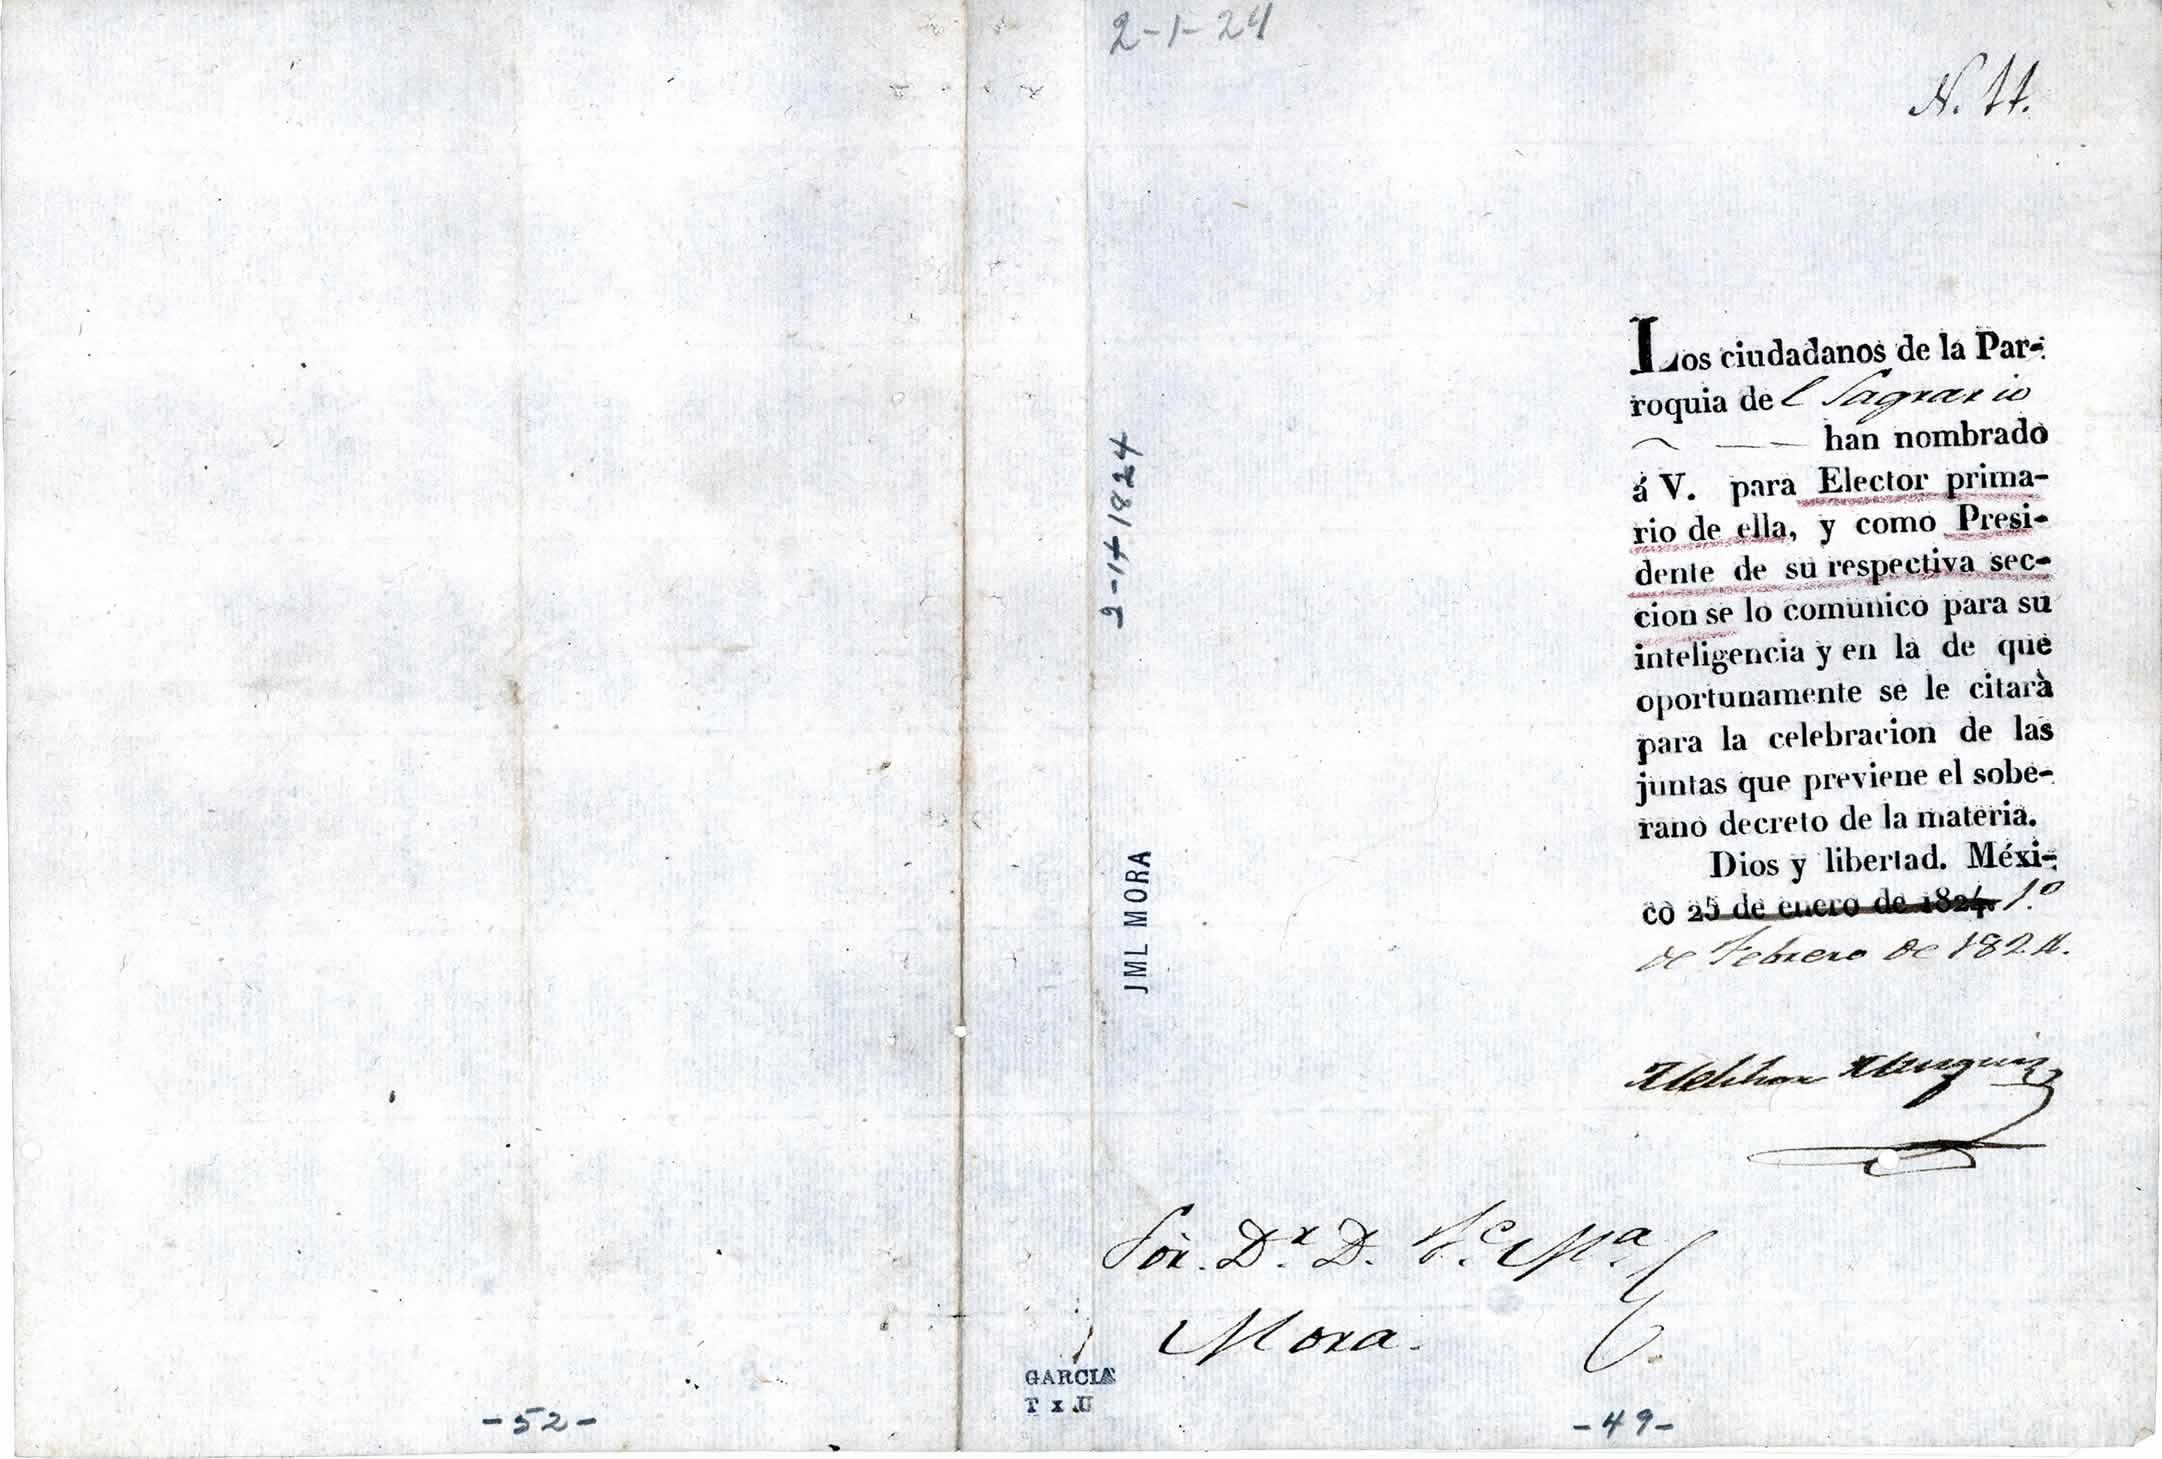 2-1-24
N. 11.
Los ciudadanos de la Par-
roquia del Sagrario
han nombrado
á V. para Elector prima-
rio de ella, y como Presi-
dente de su respectiva sec-
cion se lo comunico para su
inteligencia y en la de que
oportunamente se le citarà
para la celebracion de las
juntas que previene el sobe-
rano decreto de la materia.
Dios y libertad. Méxi-
co 25 de enero de 1824. 1.º
de Febrero de 1824.
Melchor Muzquiz
Sör. Dr. D. Je. Ma. L
Mora.
1824
JML MORA
GARCIA
T x U
-52-
-49-